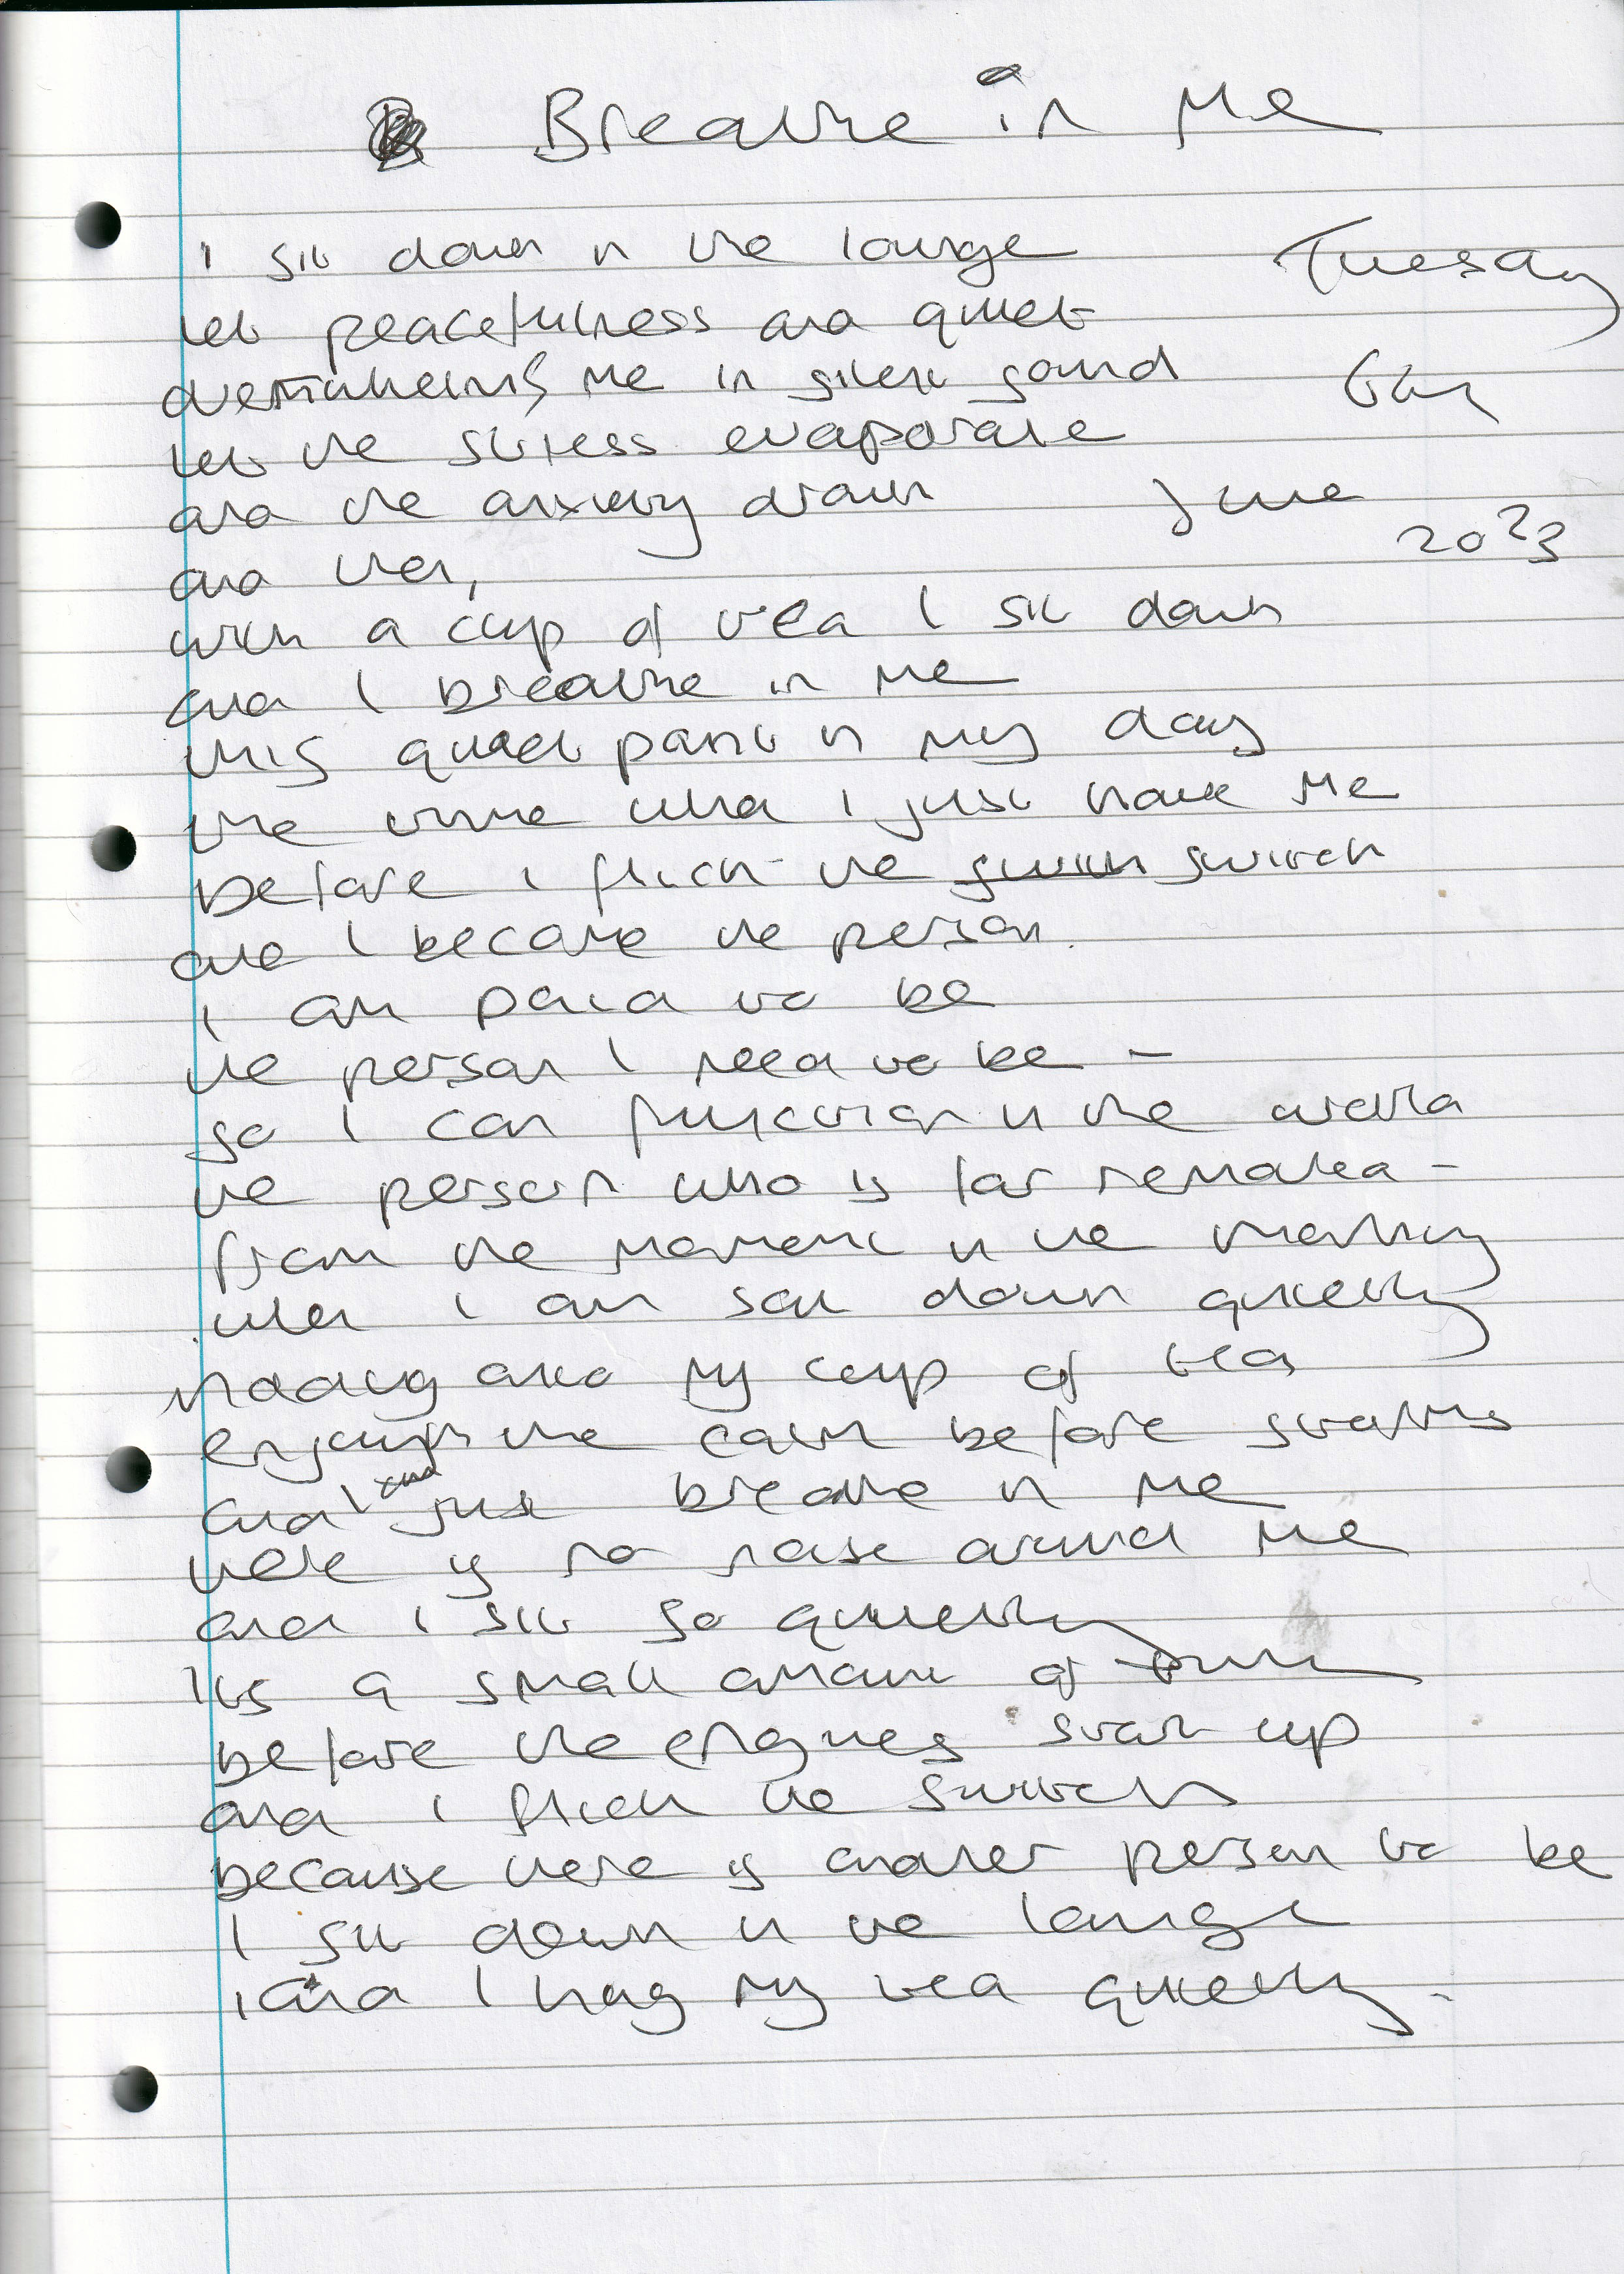 Breathe in Me
I sit down in the lounge
Tuesday
let peacefulness and quiet
overwhelming me in silent sound
6th
let the stress evaporate
and the anxiety drown
June
2023
and then,
with a cup of tea I sit down
and I breathe in me
this quiet point in my day
the time when I just have me
before I flick the switch
and I become the person
I am paid to be
the person I need to be -
so I can function in the world
the person who is far removed -
from the moment in the morning
when I am sat down quietly
my cup of tea
enjoying the calm before storms
and I just breathe in me
there is no noise around me
and I sit so quietly
Its a small amount of time
before the engines start up
and I flick the switch
because there is another person to be
I sit down in the lounge
and I hug my tea quietly.